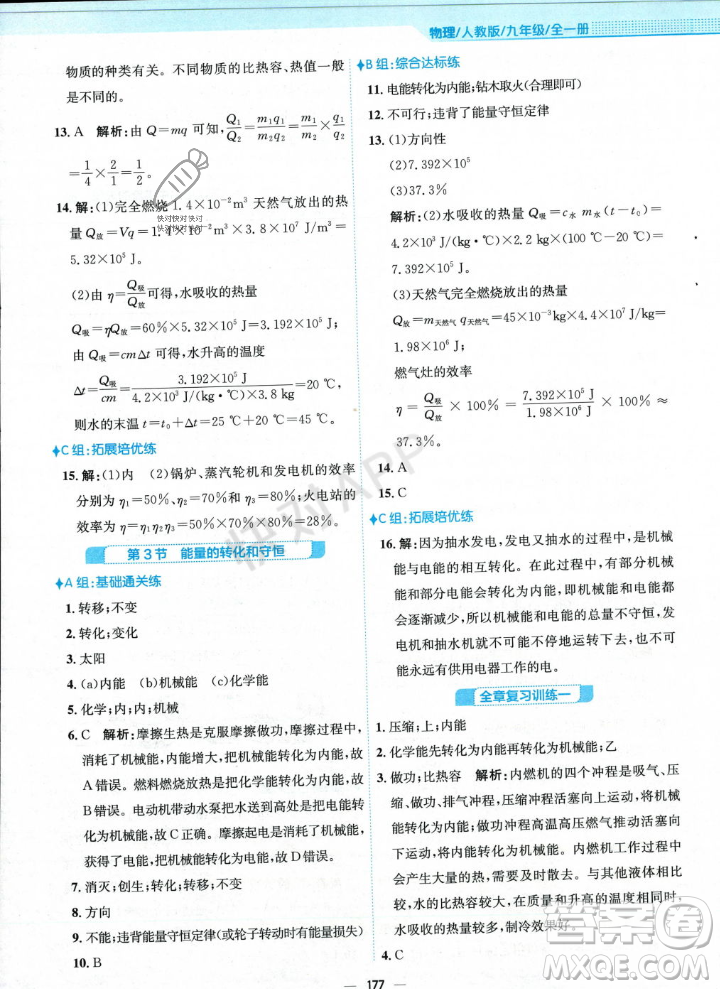 物理/人教版/九年级/全一册
物质的种类有关。不同物质的比热容、热值一般
是不同的。
13. A 解析:由 Q=mq 可知, Q₁/Q₂ = m₁q₁/m₂q₂ = m₁/m₂ × q₁/q₂
= 1/4 × 2/1 = 1/2。
14. 解:(1)完全燃烧 1.4×10⁻² m³ 天然气放出的热
量 Q放=Vq=1.4×10⁻² m³×3.8×10⁷ J/m³=
5.32×10⁵ J。
(2)由 η=Q吸/Q放 可得,水吸收的热量
Q吸=ηQ放=60%×5.32×10⁵ J=3.192×10⁵ J;
由 Q吸=cmΔt 可得,水升高的温度
Δt=Q吸/cm=3.192×10⁵ J/4.2×10³ J/(kg·℃)×3.8 kg=20 ℃,
则水的末温 t=t₀+Δt=25 ℃+20 ℃=45 ℃。
C组:拓展培优练
15. 解:(1)内 (2)锅炉、蒸汽轮机和发电机的效率
分别为 η₁=50%、η₂=70%和 η₃=80%;火电站的
效率为 η=50%×70%×80%=28%。
第3节 能量的转化和守恒
A组:基础通关练
1. 转移;不变
2. 转化;变化
3. 太阳
4. (a)内能 (b)机械能 (c)化学能
5. 化学;内;内;机械
6. C 解析:摩擦生热是克服摩擦做功,摩擦过程中,
消耗了机械能,内能增大,把机械能转化为内能,故
A错误。燃料燃烧放热是化学能转化为内能,故
B错误。电动机带动水泵把水送到高处是电能转
化为机械能,故C正确。摩擦起电消耗了机械能,
获得了电能,把机械能转化为电能,故D错误。
7. 消灭;创生;转化;转移;不变
8. 方向
9. 不能;违背能量守恒定律(或轮子转动时有能量损失)
10. B
B组:综合达标练
11. 电能转化为内能;钻木取火(合理即可)
12. 不可行;违背了能量守恒定律
13. (1)方向性
(2)7.392×10⁵
(3)37.3%
解析:(2)水吸收的热量 Q吸=c水 m水(t-t₀)=
4.2×10³ J/(kg·℃)×2.2 kg×(100 ℃-20 ℃)=
7.392×10⁵ J。
(3)天然气完全燃烧放出的热量
Q放=m天然气 q天然气=45×10⁻³ kg×4.4×10⁷ J/kg=
1.98×10⁶ J,
燃气灶的效率
η = Q吸/Q放 × 100% = 7.392×10⁵ J/1.98×10⁶ J × 100% ≈
37.3%。
14. A
15. C
C组:拓展培优练
16. 解:因为抽水发电,发电又抽水的过程中,是机械
能与电能的相互转化。在机械能与电能的转化
中部分电能会转化为内能,即机械能和电能都
会逐渐减少,所以机械能与电能的总量不守恒,
发电机和抽水机就可能不停地运转下去,也不可
能永远有供用电器工作的电。
全章复习训练一
1. 压缩;上;内能
2. 化学能先转化为内能再转化为机械能;乙
3. 做功;比热容 解析:内燃机的四个冲程是吸气、压
缩、做功、排气冲程,压缩冲程活塞向上运动,活塞
压缩燃料混合物;做功冲程高温高压燃气推动活塞
向下运动,对外输出动力。内燃机工作过程中
会产生大量的热,必须及时将热量散失出去。与
其他液体相比,水在质量和升高的温度相同时吸
收的热量较多,制冷效果好。
4. C
177
快对快对快对
快对快对快对快对
快对APP
答案圈
MXQE.COM